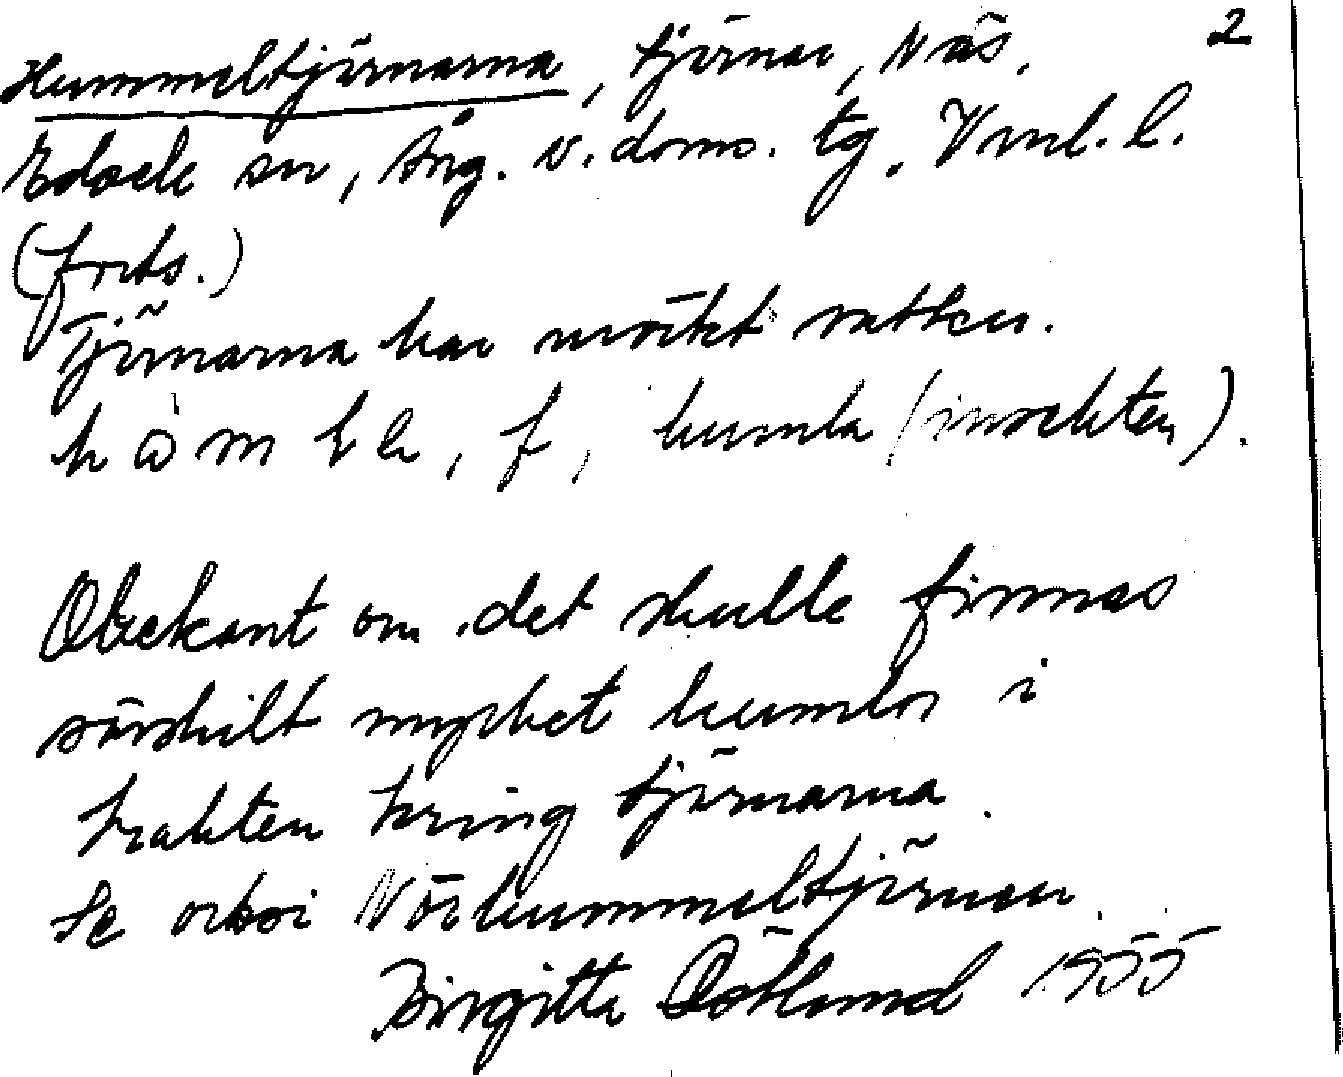 Hummeltjärnarna, tjärnar, Näs, 2
Edsele sn, Ång. v. doms. tg. Vnl. l.
(forts.)
Tjärnarna har mörkt vatten.
humla (insekten).
Obekant om det skulle finnas
särskilt mycket humlor i
trakten kring tjärnarna.
Se också Nörhummeltjärnen.
Birgitta Östlund 1955